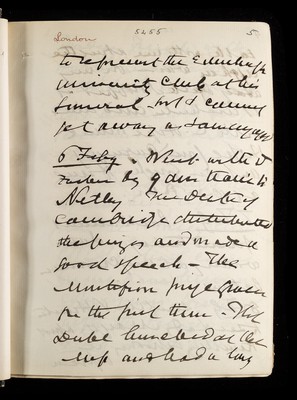 London 5255 5
to represent the Edinburgh
University Club at his
funeral but I cannot
get away
6 Feby. Went with
by 9 am train to
Netley The Duke of
Cambridge distributed
the prizes and made a
good speech - The
Montefiore prize given
for the first time - The
Duke lunched at the
Mess and had a long